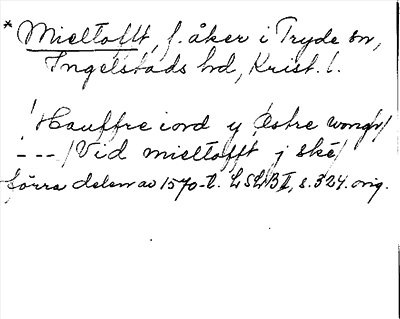 * Mieltofft, f. åker i Tryde sn,
Ingelstads hd, Krist. l.
/Hauffre iord y Østre wong/
---/Vid mieltofft j ske/
förra delen av 1570-t. LSLB II, s. 324. orig.